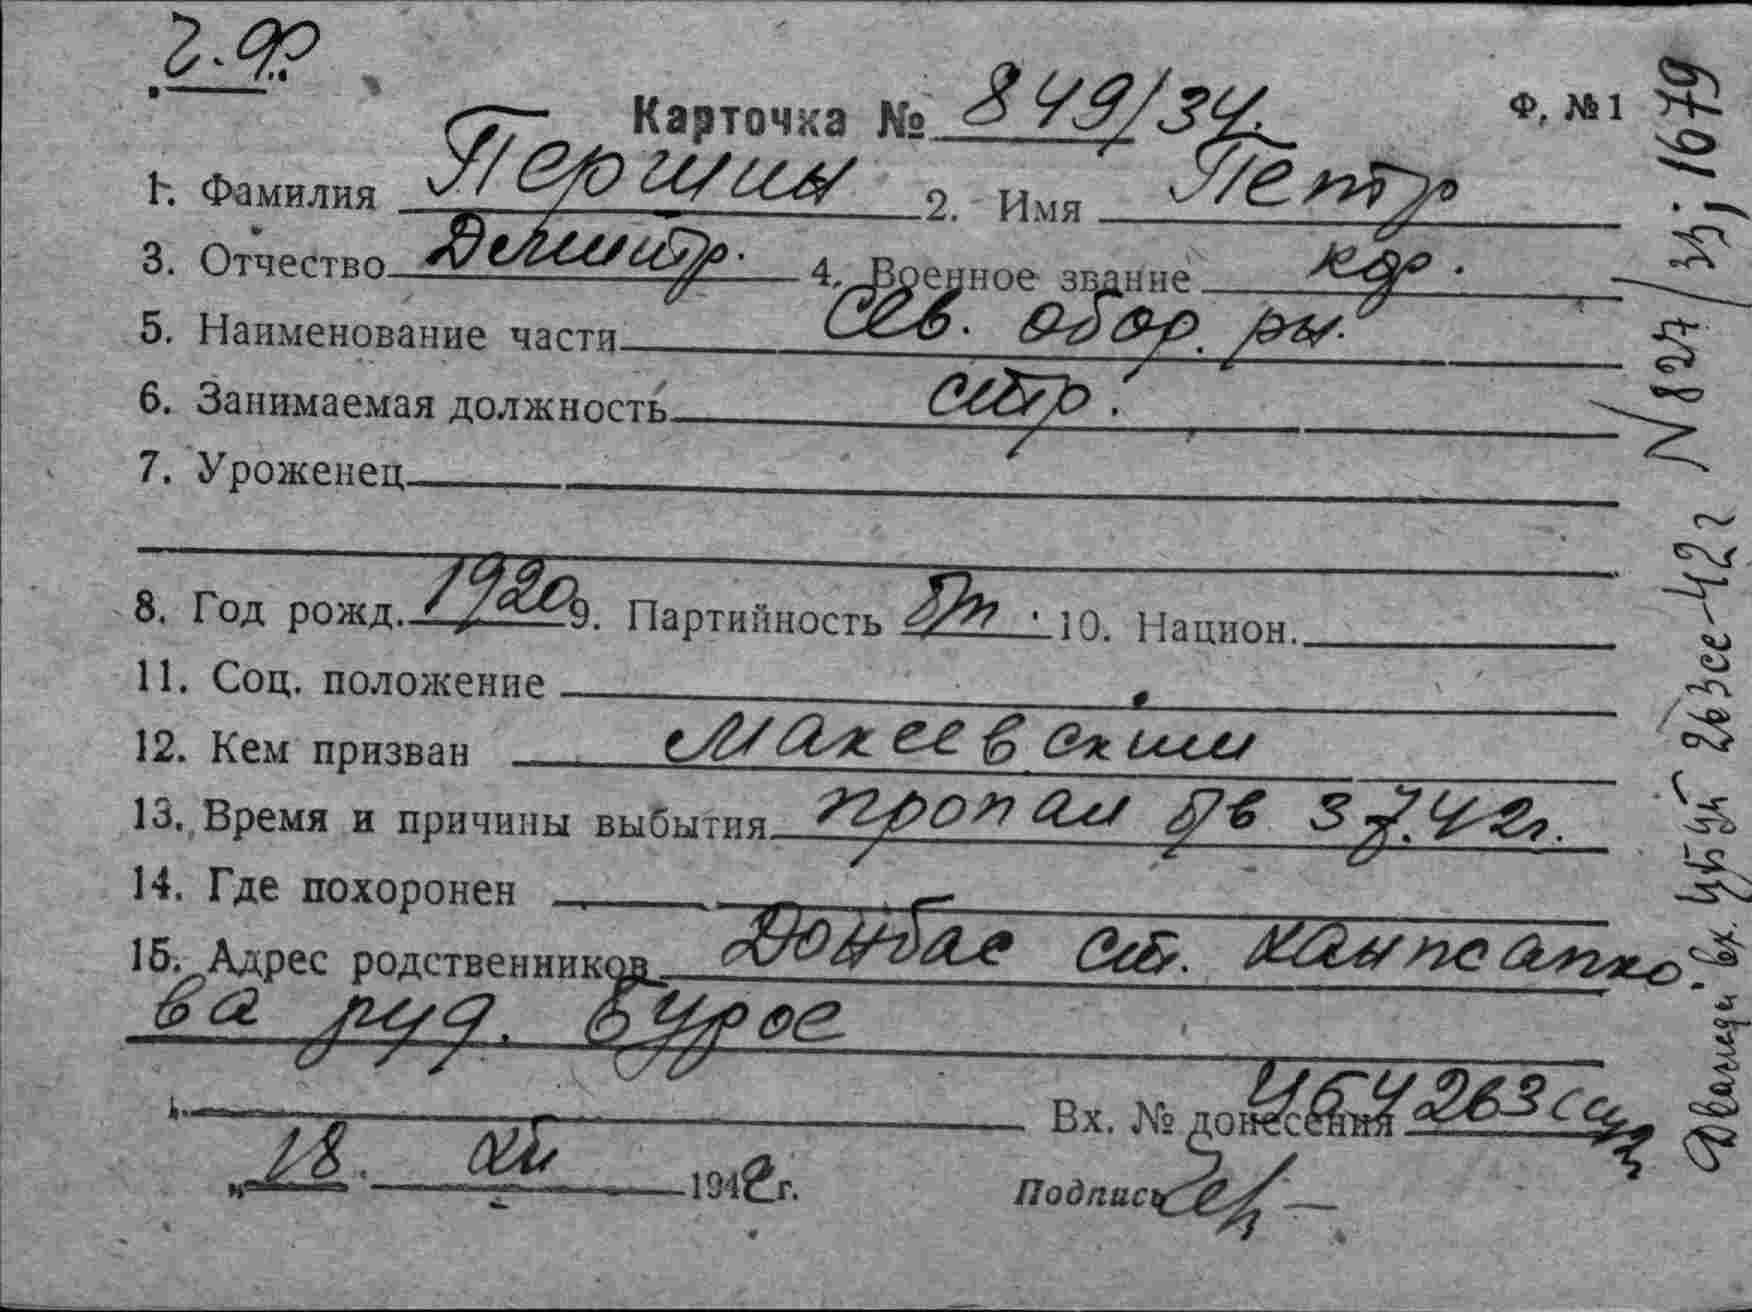 Ч.Ф.
Карточка № 849/34. Ф. № 1
1. Фамилия Першин 2. Имя Петр
3. Отчество Дмитр. 4. Военное звание кр.
5. Наименование части Сев. обор. рн.
6. Занимаемая должность стр.
7. Уроженец
8. Год рожд. 1920 9. Партийность б/п. 10. Национ.
11. Соц. положение
12. Кем призван Макеевским
13. Время и причины выбытия пропал б/в 3.7.42г.
14. Где похоронен
15. Адрес родственников Донбас ст.
ва руд. Бурое
Вх. № донесения
„18. XII 1942г. Подпись
Дважды вх. 42г № 827/33; 1679